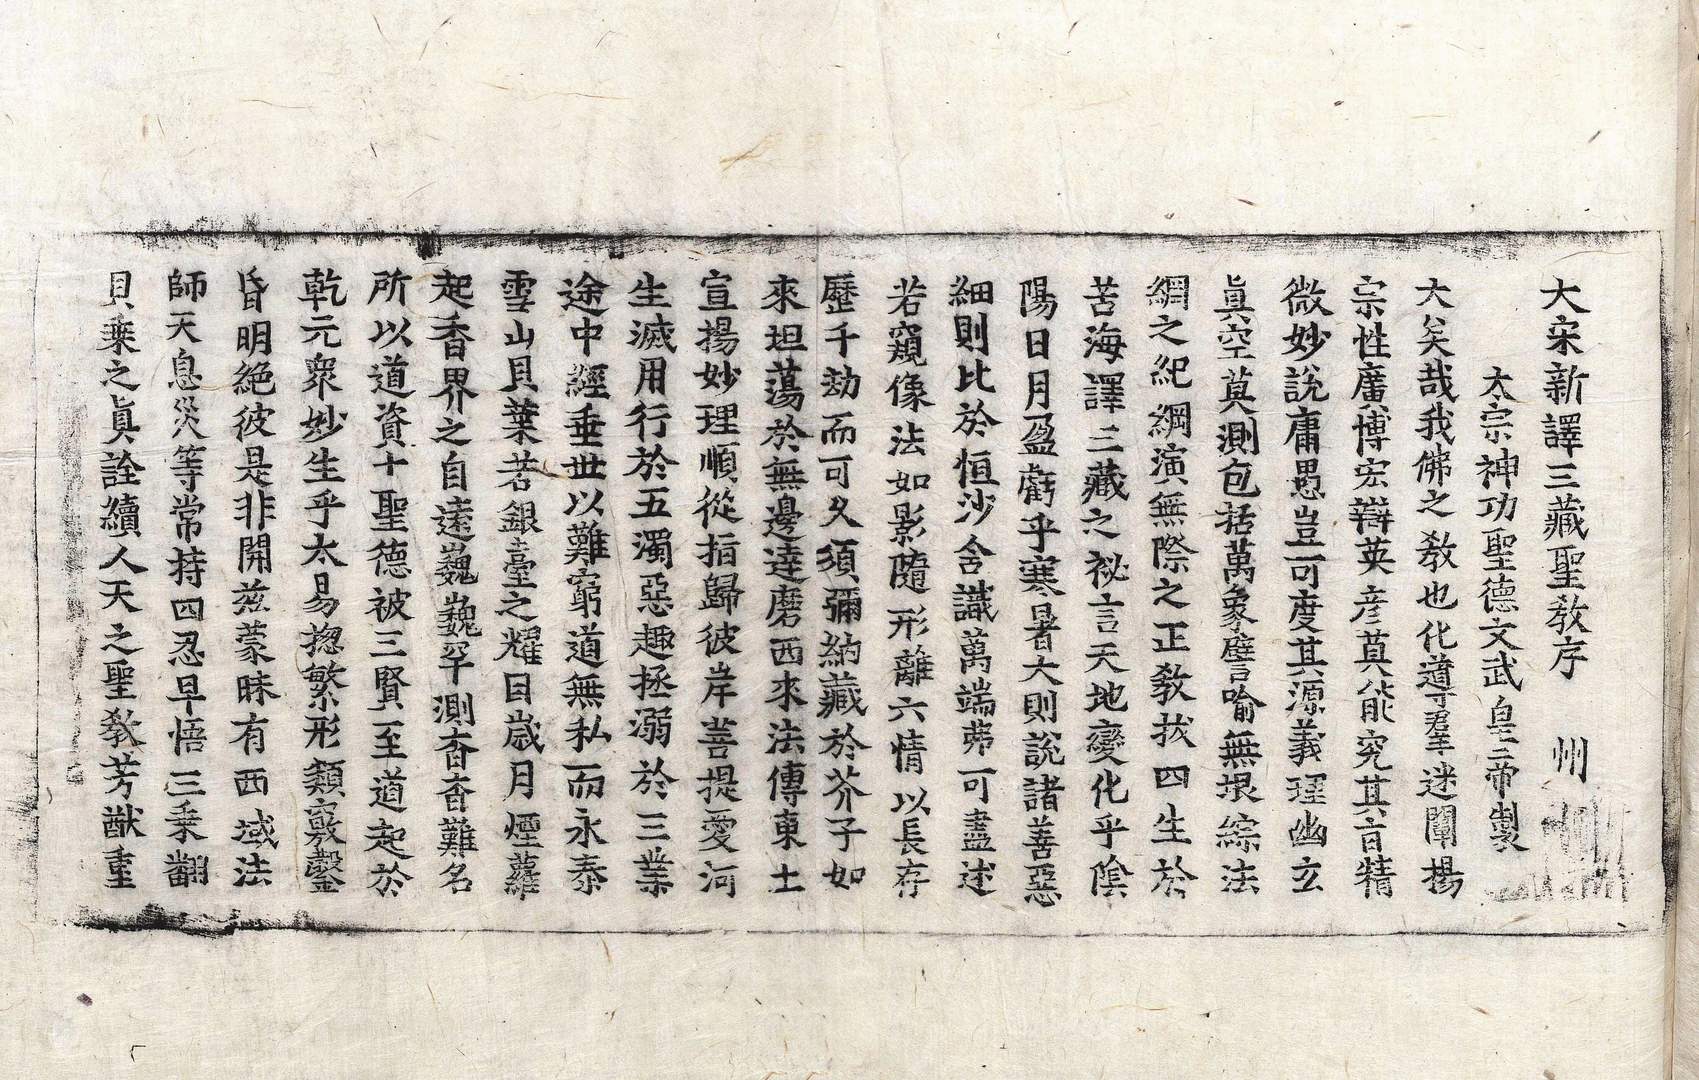 大宋新譯三藏聖教序　州
太宗神功聖德文武皇帝製
大矣哉我佛之教也化導羣迷闡揚
宗性廣博宏辯英彦莫能究其旨精
微妙說庸愚豈可度其源義理幽玄
真空莫測包括萬象譬喻無垠綜法
網之紀綱演無際之正教拔四生於
苦海譯三藏之祕言天地變化乎陰
陽日月盈虧乎寒暑大則說諸善惡
細則比於恒沙含識萬端弗可盡述
若窺像法如影隨形離六情以長存
歷千劫而可久須彌納藏於芥子如
來坦蕩於無邊達磨西來法傳東土
宣揚妙理順從指歸彼岸菩提愛河
生滅用行於五濁惡趣拯溺於三業
途中經垂世以難窮道無私而永泰
雪山貝葉若銀臺之耀目歲月煙蘿
起香界之自遠巍巍罕測杳杳難名
所以道資十聖德被三賢至道起於
乾元衆妙生乎太易揔繁形類竅鑿
昏明絕彼是非開茲蒙昧有西域法
師天息災等常持四忍早悟三乘翻
貝乘之真詮續人天之聖教芳猷重